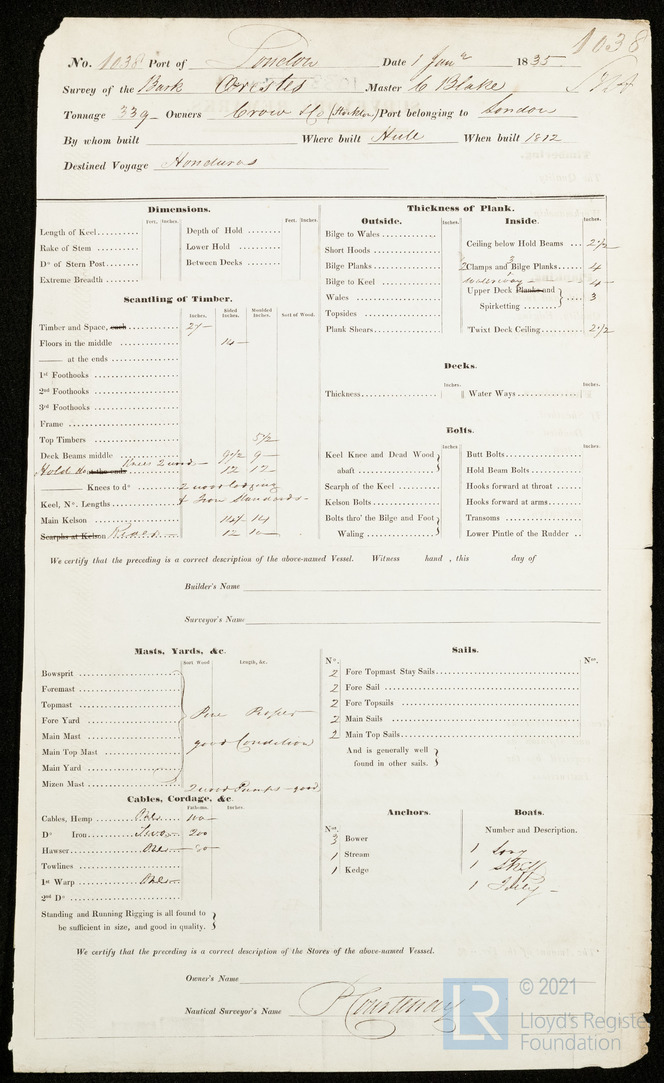 1038
No. 1038 Port of London Date 1 Jany 1835
Survey of the Bark Orestes Master C Blake
Tonnage 339 Owners Crow & Co (Stockton) Port belonging to London
By whom built Where built Hull When built 1812
Destined Voyage Honduras
Dimensions.
Feet. Inches. Feet. Inches.
Length of Keel.......... Depth of Hold ........
Rake of Stem .......... Lower Hold ........
Do of Stern Post........ Between Decks ........
Extreme Breadth ........
Scantling of Timber.
Inches. Sided Inches. Moulded Inches. Sort of Wood.
Timber and Space, each 27
Floors in the middle 14
—— at the ends
1st Foothooks
2nd Foothooks
3rd Foothooks
Frame
Top Timbers 5 1/2
Deck Beams middle 9 1/2 9
Hold at the ends 12 12
Knees 2 wood
—— Knees to do 2 wood lodging
Keel, No. Lengths & Iron Standards
Main Kelson 14 14
Scarphs at Kelson 12 10
Thickness of Plank.
Outside. Inches.
Bilge to Wales
Short Hoods
Bilge Planks
Bilge to Keel
Wales
Topsides
Plank Shears
Inside. Inches.
Ceiling below Hold Beams ... 2 1/2
2 Clamps and 3 Bilge Planks 4
Waterway 4
Upper Deck Planks and Spirketting 3
'Twixt Deck Ceiling 2 1/2
Decks.
Inches. Inches.
Thickness Water Ways
Bolts.
Inches Inches
Keel Knee and Dead Wood abaft
Scarph of the Keel
Kelson Bolts
Bolts thro' the Bilge and Foot Waling
Butt Bolts
Hold Beam Bolts
Hooks forward at throat
Hooks forward at arms
Transoms
Lower Pintle of the Rudder
We certify that the preceding is a correct description of the above-named Vessel. Witness hand , this day of
Builder's Name
Surveyor's Name
Masts, Yards, &c.
Sort Wood Length, &c.
Bowsprit
Foremast
Topmast
Fore Yard
Main Mast
Main Top Mast
Main Yard
Mizen Mast
Pine Proper
good Condition
2 wood Pumps good
Cables, Cordage, &c.
Fathoms. Inches.
Cables, Hemp One 100
Do Iron Two 200
Hawser One 80
Towlines
1st Warp One
2nd Do
Standing and Running Rigging is all found to
be sufficient in size, and good in quality.
Sails.
No. No.
2 Fore Topmast Stay Sails
2 Fore Sail
2 Fore Topsails
2 Main Sails
2 Main Top Sails
And is generally well
found in other sails.
Anchors.
No.
3 Bower
1 Stream
1 Kedge
Boats.
Number and Description.
1 Long
1 Skiff
1 Jolly
We certify that the preceding is a correct description of the Stores of the above-named Vesssel.
Owner's Name
Nautical Surveyor's Name P Courtenay
LR © 2021
Lloyd's Register
Foundation